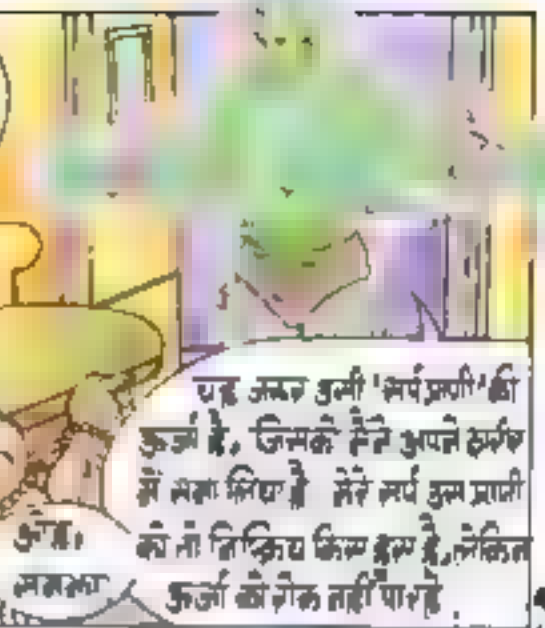 ओह।
समझा
यह जरूर उसी 'सर्प प्राणी' की
ऊर्जा है, जिसको मैंने अपने शरीर
में समा लिया है मेरे सर्प उस प्राणी
को तो निष्क्रिय किए हुए हैं, लेकिन
ऊर्जा को रोक नहीं पा रहे